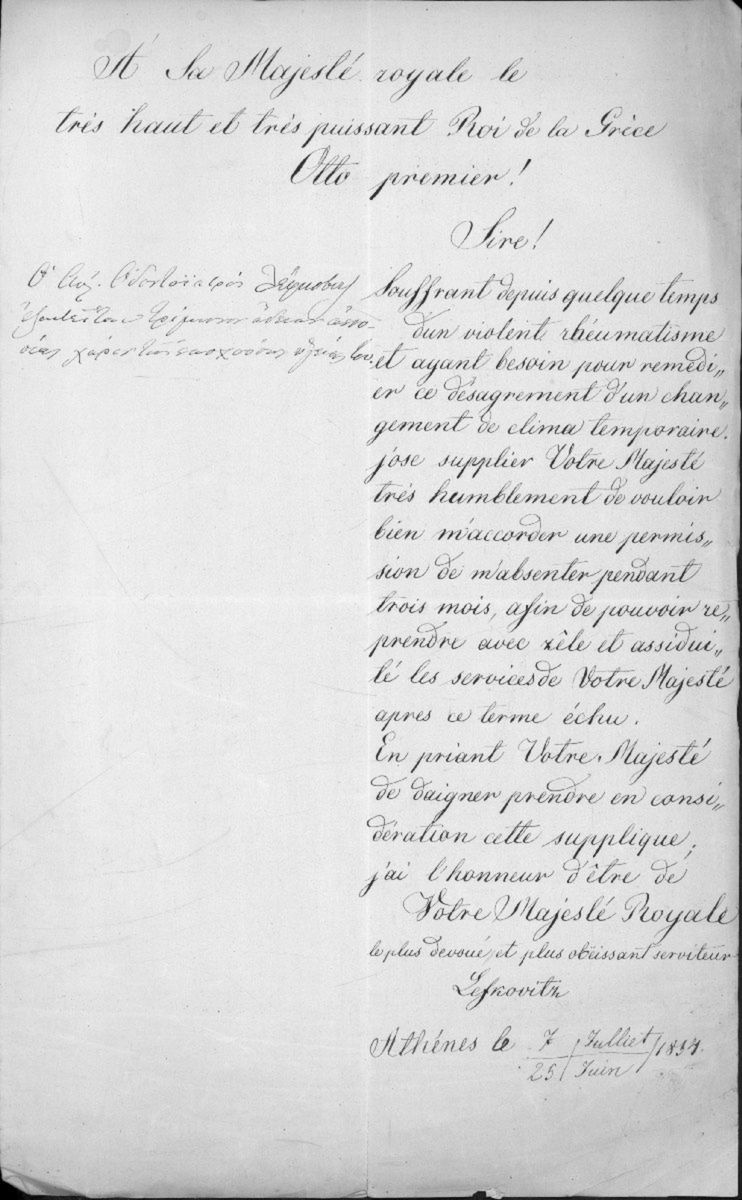 A Sa Majesté royale le
trés haut et trés puissant Roi de la Gréce
Otto premier!
Sire!
Ὁ Αὐλ. Ὀδοντοϊατρός Λέφκοβιτς
ἐξαιτεῖται τρίμηνον ἄδειαν ἀπου-
σίας χάριν τῆς πασχούσης ὑγείας του.
Souffrant depuis quelque temps
d'un violent rhéumatisme
et ayant besoin pour remedi„
er ce désagrement d'un chan„
gement de clima temporaire.
j'ose supplier Votre Majesté
trés humblement de vouloir
bien m'accorder une permis„
sion de m'absenter pendant
trois mois, afin de pouvoir re„
prendre avec zêle et assidui„
té les services de Votre Majesté
apres ce terme échu.
En priant Votre Majesté
de daigner prendre en consi„
dération cette supplique,
j'ai l'honneur d'être de
Votre Majesté Royale
le plus devoué et plus obëissant serviteur
Lefkovitz
Athénes le 7/25 Julliet/Juin 1857.